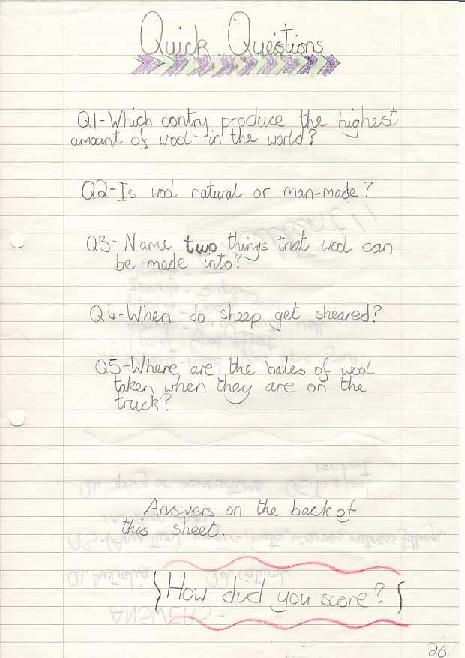 Quick Questions
Q1-Which contry produce the highest
amount of wool in the world?
Q2-Is wool natural or man-made?
Q3-Name two things that wool can
be made into?
Q4-When do sheep get sheared?
Q5-Where are the bales of wool
taken when they are on the
truck?
Answers on the back of
this sheet.
How did you score?
26